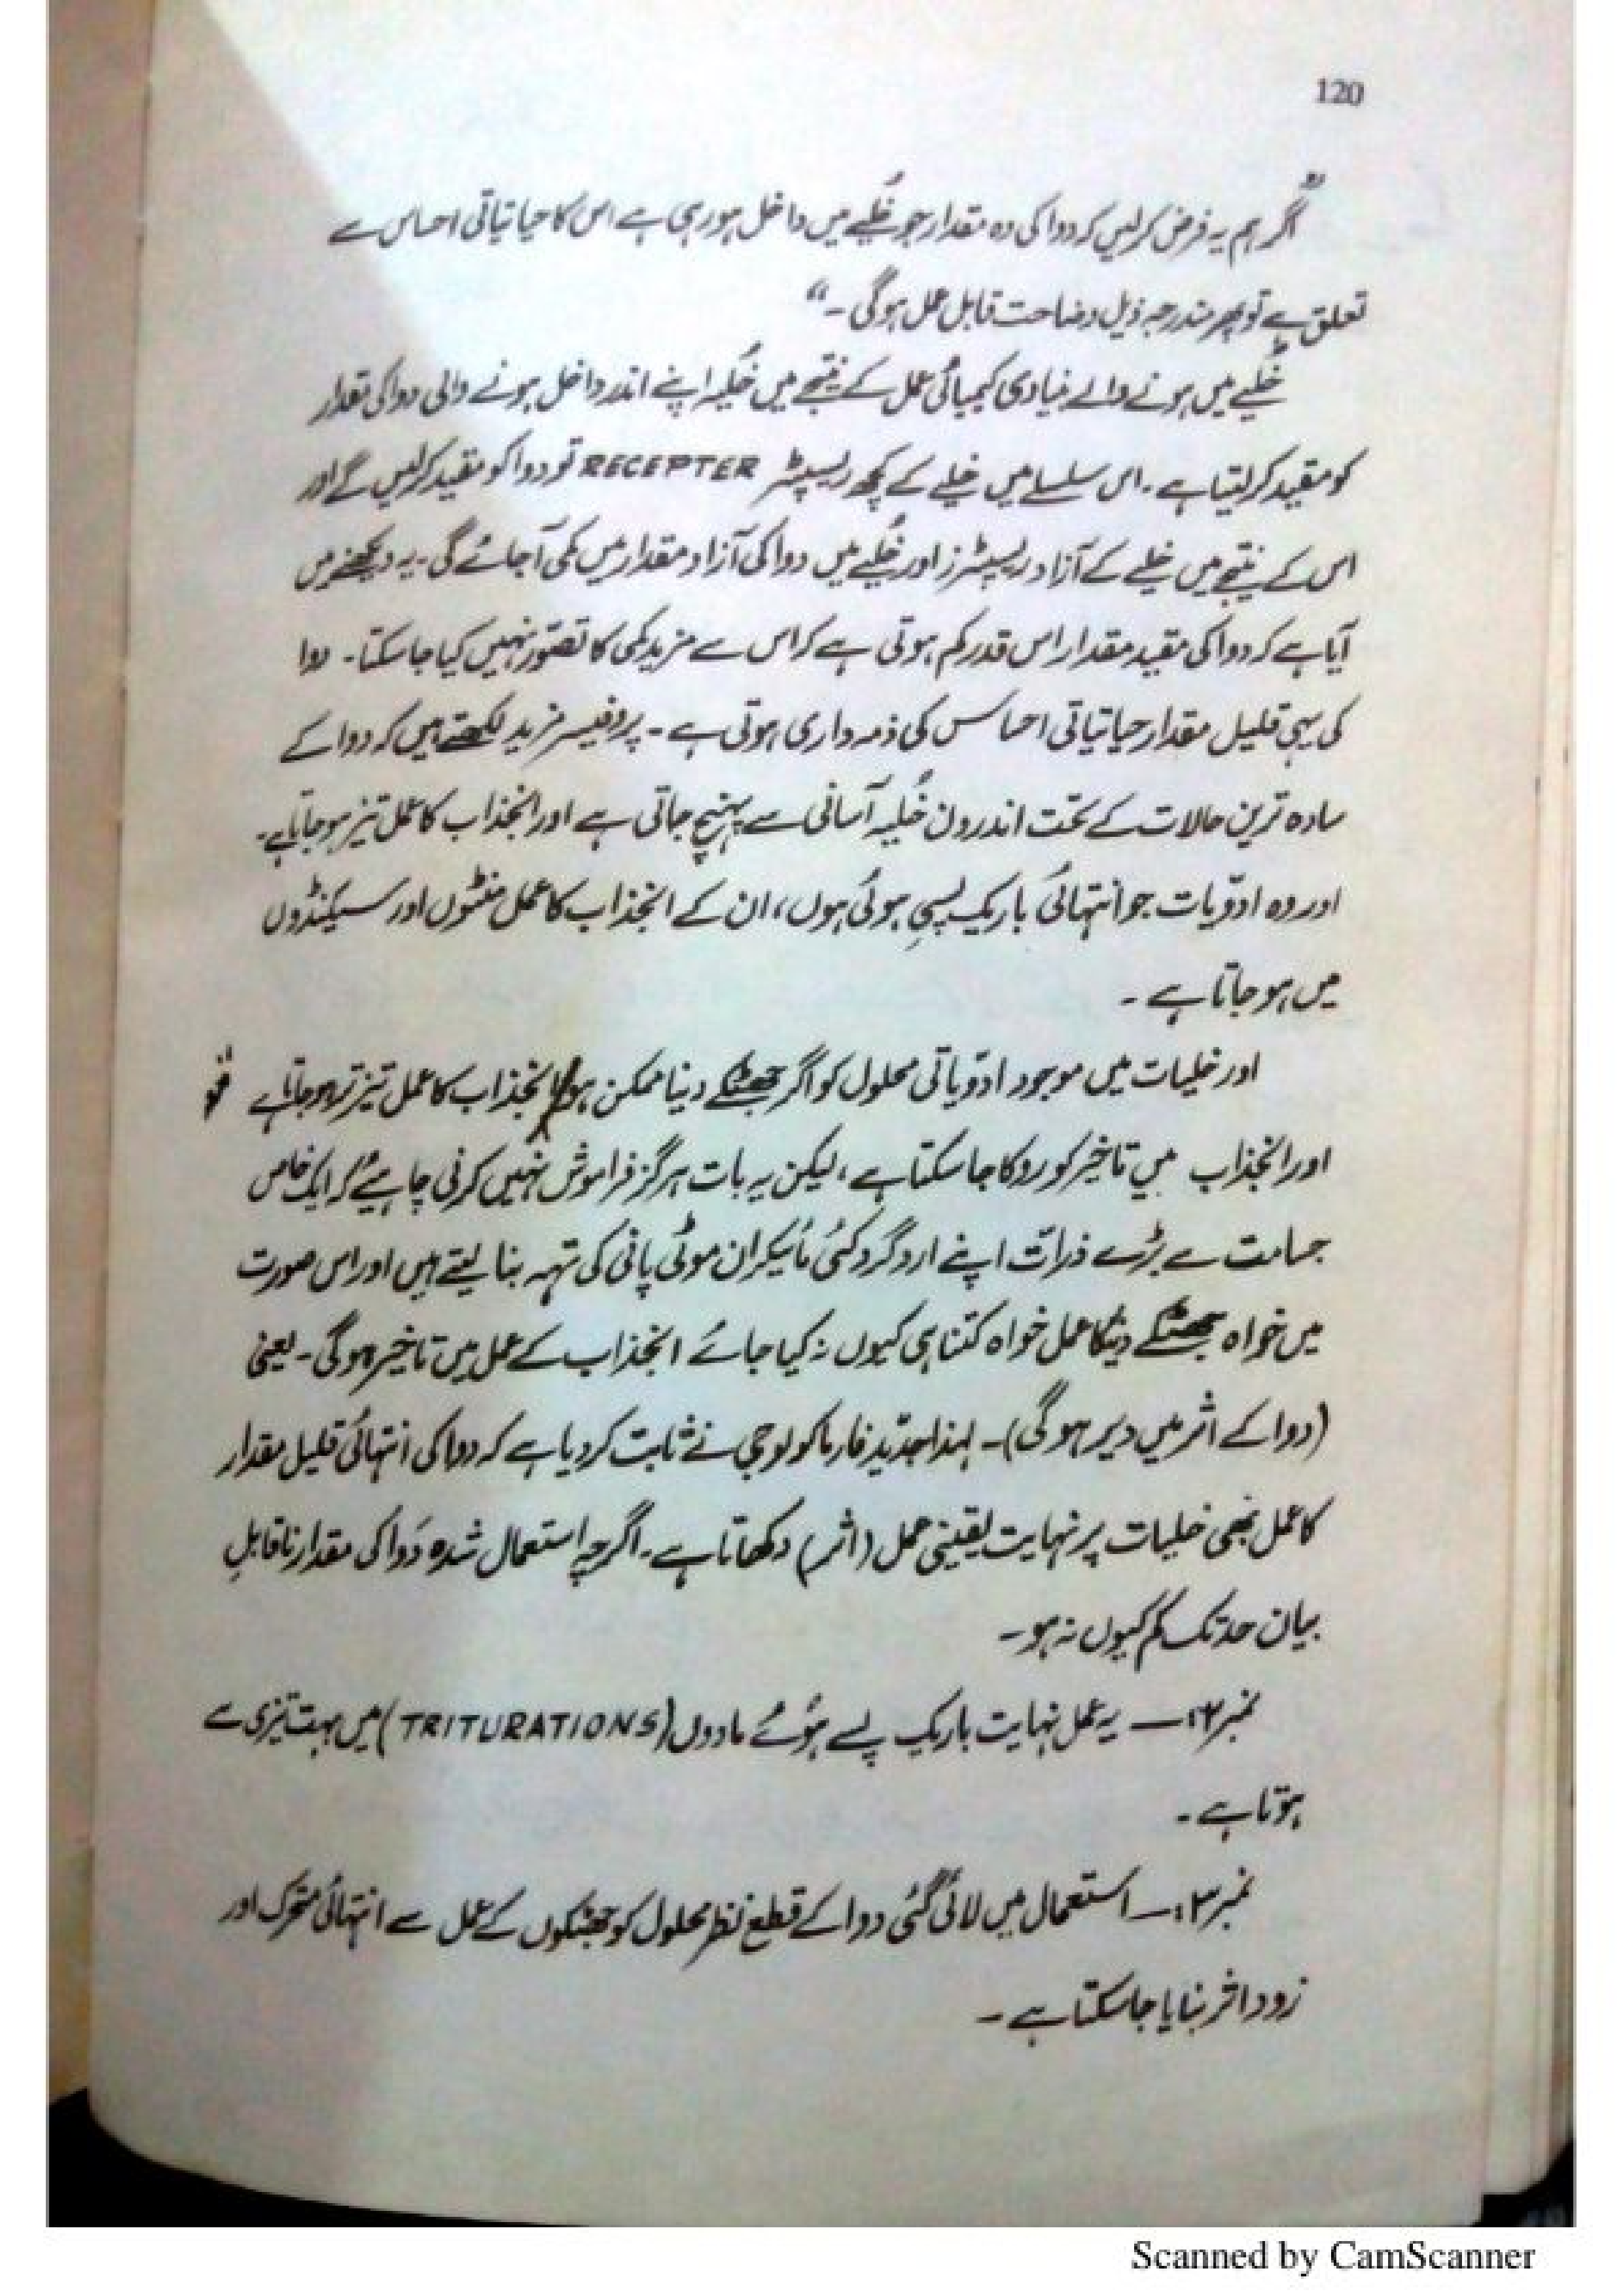 120
"اگر ہم یہ فرض کرلیں کہ دوا کی وہ مقدار جو خُلیے میں داخل ہو رہی ہے اس کا حیاتیاتی احساس سے
تعلق ہے تو پھر مندرجہ ذیل وضاحت قابل عمل ہوگی۔"
خُلیے میں ہونے والے بنیادی کیمیائی عمل کے نتیجے میں خُلیہ اپنے اندر داخل ہونے والی دوا کی مقدار
کو مقید کر لیتا ہے۔ اس سلسلے میں خلیے کے کچھ ریسپٹر RECEPTER تو دوا کو مقید کرلیں گے اور
اس کے نتیجے میں خلیے کے آزاد ریسپٹرز اور خُلیے میں دوا کی آزاد مقدار میں کمی آجائے گی۔ یہ دیکھنے میں
آیا ہے کہ دوا کی مقید مقدار اس قدر کم ہوتی ہے کہ اس سے مزید کمی کا تصوّر نہیں کیا جاسکتا۔ دوا
کی یہی قلیل مقدار حیاتیاتی احساس کی ذمہ داری ہوتی ہے۔ پروفیسر مزید لکھتے ہیں کہ دوا کے
سادہ ترین حالات کے تحت اندرون خُلیہ آسانی سے پہنچ جاتی ہے اور انجذاب کا عمل تیز ہو جاتا ہے۔
اور وہ ادوّیات جو انتہائی باریک پسی ہوئی ہوں، ان کے انجذاب کا عمل منٹوں اور سیکنڈوں
میں ہو جاتا ہے۔
اور خلیات میں موجود ادوّیاتی محلول کو اگر جھٹکے دینا ممکن ہو انجذاب کا عمل تیز تر ہو جاتا ہے تو
اور انجذاب میں تاخیر کو روکا جا سکتا ہے، لیکن یہ بات ہرگز فراموش نہیں کرنی چاہیئے کہ ایک خاص
جسامت سے بڑے ذراتّ اپنے اردگرد کئی مائیکران موٹی پانی کی تہہ بنا لیتے ہیں اور اس صورت
میں خواہ جھٹکے دینگا عمل خواہ کتنا ہی کیوں نہ کیا جائے انجذاب کے عمل میں تاخیر ہوگی۔ یعنی
(دوا کے اثر میں دیر ہوگی)۔ لہذا جدّید فارماکولوجی نے ثابت کر دیا ہے کہ دوا کی انتہائی قلیل مقدار
کا عمل بھی خلیات پر نہایت یقینی عمل (اثر) دکھاتا ہے۔ اگرچہ استعمال شدہ دَوا کی مقدار ناقابلِ
بیان حد تک کم کیوں نہ ہو۔
نمبر۲:۔ یہ عمل نہایت باریک پسے ہوئے مادوں (TRITURATIONS) میں بہت تیزی سے
ہوتا ہے۔
نمبر۳:۔ استعمال میں لائی گئی دوا کے قطع نظر محلول کو جھٹکوں کے عمل سے انتہائی متحرک اور
زود اثر بنایا جاسکتا ہے۔
Scanned by CamScanner